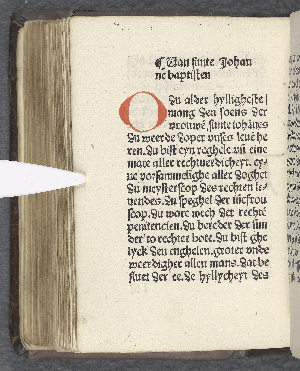 ¶ Uan sunte Johan
ne baptisten
O Du alder hylligheste
mang den soens der
vrouwē, sunte iohānes
du weerde doper unses leuē he
ren. Du bist eyn reghele. vñ eine
mate aller rechtuerdicheyt. ey-
ne vorsammelighe aller doghet
Du meysterscop des rechten le-
uendes. Du speghel der iūcfrou
scop. Du ware wech der rechtē
penitencien. Du bereder der sun
der to rechter bote. Du bist ghe
lyck den enghelen. groter unde
weerdigher allen mans. Dat be
sluet der ee. de hyllycheyt des